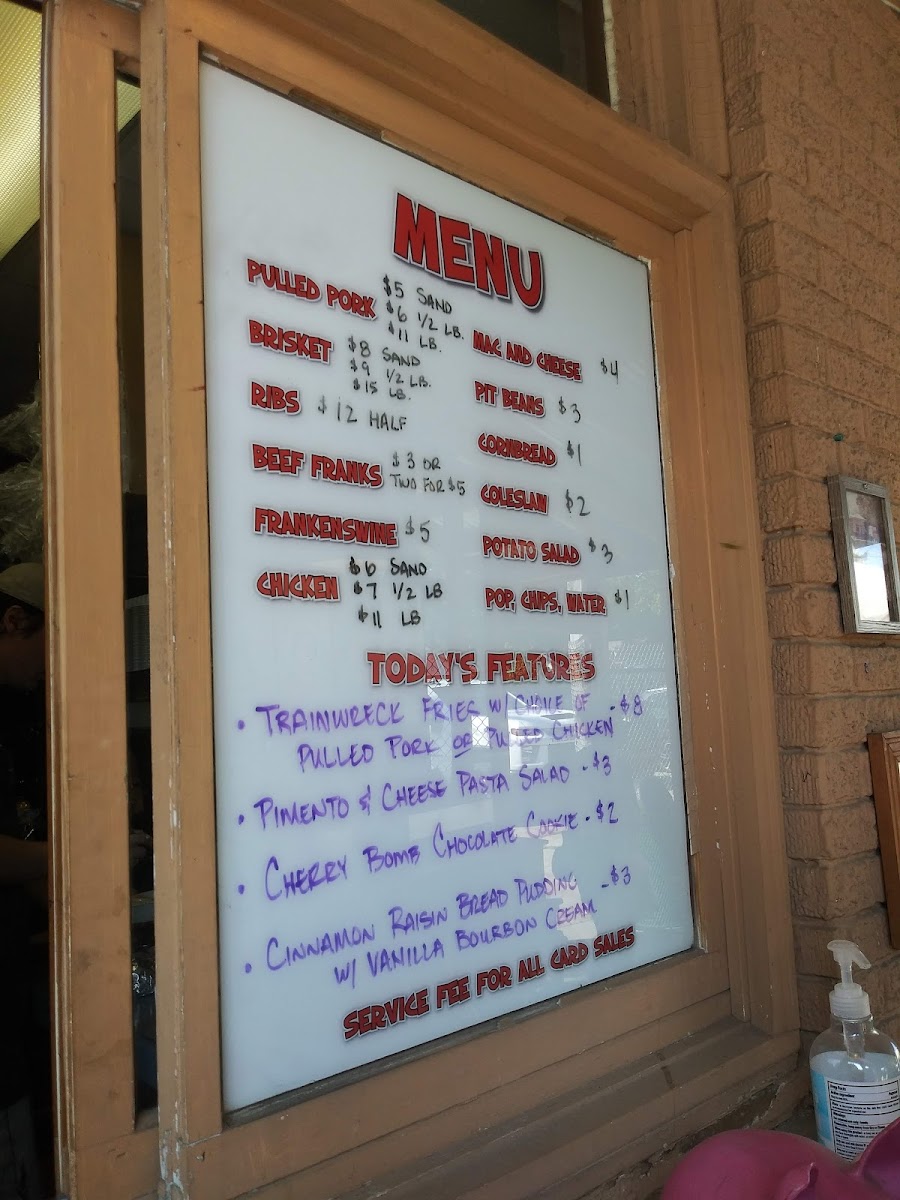 MENU
PULLED PORK $5 SAND
$6 1/2 LB.
$11 LB.
BRISKET $8 SAND
$9 1/2 LB.
$15 LB.
RIBS $12 HALF
BEEF FRANKS $3 OR
TWO FOR $5
FRANKENSWINE $5
CHICKEN $6 SAND
$7 1/2 LB
$11 LB
MAC AND CHEESE $4
PIT BEANS $3
CORNBREAD $1
COLESLAW $2
POTATO SALAD $3
POP, CHIPS, WATER $1
TODAY'S FEATURES
• TRAINWRECK FRIES W/ CHOICE OF - $8
PULLED PORK OR PULLED CHICKEN
• PIMENTO & CHEESE PASTA SALAD - $3
• CHERRY BOMB CHOCOLATE COOKIE - $2
• CINNAMON RAISIN BREAD PUDDING - $3
W/ VANILLA BOURBON CREAM
SERVICE FEE FOR ALL CARD SALES